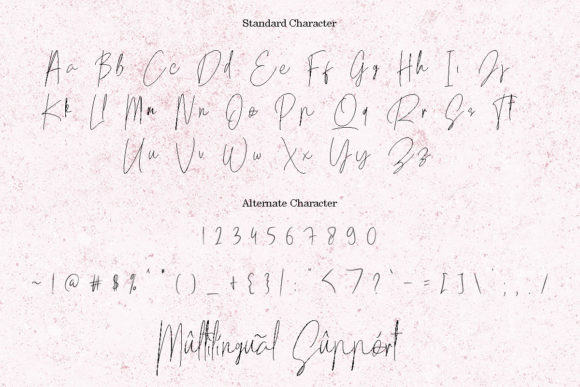 Standard Character
Aa Bb Cc Dd Ee Ff Gg Hh Ii Jj
Kk Ll Mm Nn Oo Pp Qq Rr Ss Tt
Uu Vv Ww Xx Yy Zz
Alternate Character
1 2 3 4 5 6 7 8 9 0
~ ! @ # $ % ^ * ( ) _ + { } | : " < > ? ` - = [ ] \ ' ; , . /
Mûltilínguãl Sûppórt